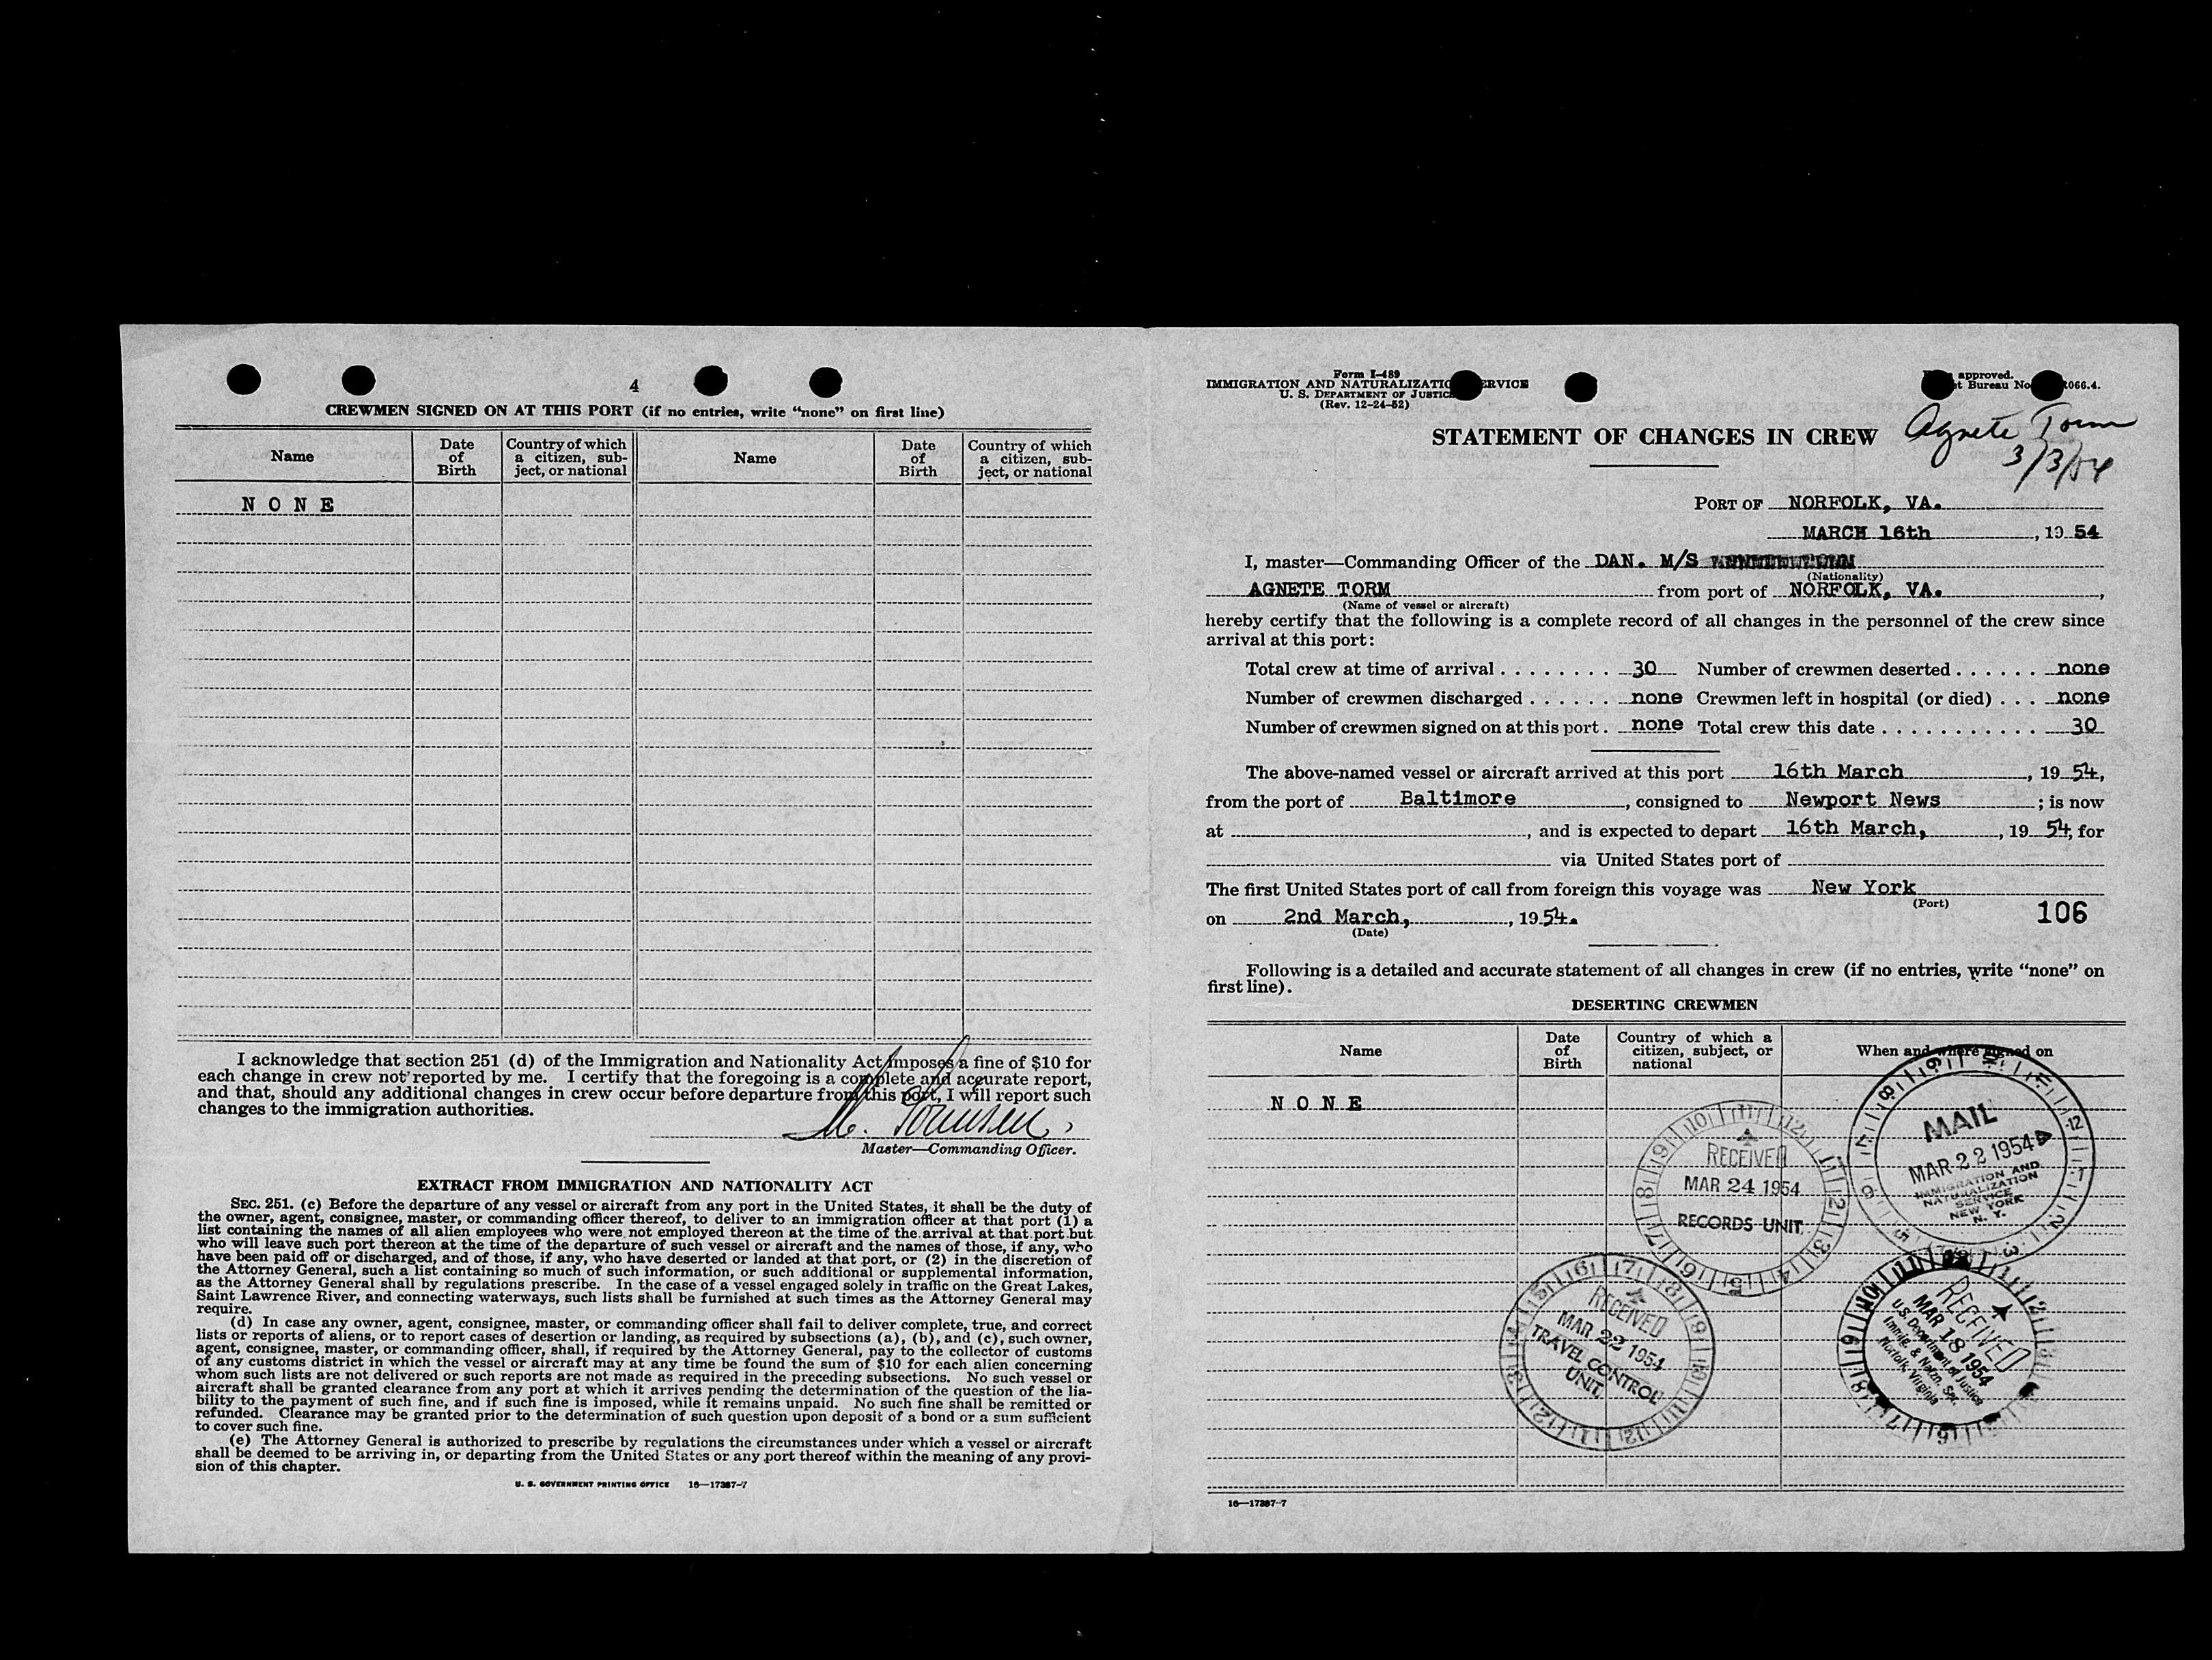 4
CREWMEN SIGNED ON AT THIS PORT (if no entries, write “none” on first line)
Name
Date of Birth
Country of which a citizen, subject, or national
Name
Date of Birth
Country of which a citizen, subject, or national
N O N E
I acknowledge that section 251 (d) of the Immigration and Nationality Act imposes a fine of $10 for
each change in crew not reported by me. I certify that the foregoing is a complete and accurate report,
and that, should any additional changes in crew occur before departure from this port, I will report such
changes to the immigration authorities.
Master—Commanding Officer.
EXTRACT FROM IMMIGRATION AND NATIONALITY ACT
SEC. 251. (c) Before the departure of any vessel or aircraft from any port in the United States, it shall be the duty of
the owner, agent, consignee, master, or commanding officer thereof, to deliver to an immigration officer at that port (1) a
list containing the names of all alien employees who were not employed thereon at the time of the arrival at that port but
who will leave such port thereon at the time of the departure of such vessel or aircraft and the names of those, if any, who
have been paid off or discharged, and of those, if any, who have deserted or landed at that port, or (2) in the discretion of
the Attorney General, such a list containing so much of such information, or such additional or supplemental information,
as the Attorney General shall by regulations prescribe. In the case of a vessel engaged solely in traffic on the Great Lakes,
Saint Lawrence River, and connecting waterways, such lists shall be furnished at such times as the Attorney General may
require.
(d) In case any owner, agent, consignee, master, or commanding officer shall fail to deliver complete, true, and correct
lists or reports of aliens, or to report cases of desertion or landing, as required by subsections (a), (b), and (c), such owner,
agent, consignee, master, or commanding officer, shall, if required by the Attorney General, pay to the collector of customs
of any customs district in which the vessel or aircraft may at any time be found the sum of $10 for each alien concerning
whom such lists are not delivered or such reports are not made as required in the preceding subsections. No such vessel or
aircraft shall be granted clearance from any port at which it arrives pending the determination of the question of the lia-
bility to the payment of such fine, and if such fine is imposed, while it remains unpaid. No such fine shall be remitted or
refunded. Clearance may be granted prior to the determination of such question upon deposit of a bond or a sum sufficient
to cover such fine.
(e) The Attorney General is authorized to prescribe by regulations the circumstances under which a vessel or aircraft
shall be deemed to be arriving in, or departing from the United States or any port thereof within the meaning of any provi-
sion of this chapter.
U. S. GOVERNMENT PRINTING OFFICE 16—17387-7
Form I-489
IMMIGRATION AND NATURALIZATIO ERVICE
U. S. DEPARTMENT OF JUSTIC
(Rev. 12-24-52)
approved.
t Bureau No 066.4.
STATEMENT OF CHANGES IN CREW
Agnete Torm
3/3/54
PORT OF NORFOLK, VA.
MARCH 16th, 19 54
I, master—Commanding Officer of the DAN. M/S
(Nationality)
AGNETE TORM from port of NORFOLK, VA.,
(Name of vessel or aircraft)
hereby certify that the following is a complete record of all changes in the personnel of the crew since
arrival at this port:
Total crew at time of arrival . . . . . . . . 30 Number of crewmen deserted . . . . . . none
Number of crewmen discharged . . . . . . none Crewmen left in hospital (or died) . . . none
Number of crewmen signed on at this port . none Total crew this date . . . . . . . . . . . . 30
The above-named vessel or aircraft arrived at this port 16th March, 19 54,
from the port of Baltimore, consigned to Newport News; is now
at , and is expected to depart 16th March, , 19 54, for
via United States port of
The first United States port of call from foreign this voyage was New York
(Port)
on 2nd March, , 19 54.
(Date)
106
Following is a detailed and accurate statement of all changes in crew (if no entries, write “none” on
first line).
DESERTING CREWMEN
Name
Date of Birth
Country of which a citizen, subject, or national
When and where signed on
N O N E
MAIL
MAR 22 1954
IMMIGRATION AND
NATURALIZATION
SERVICE
NEW YORK
N. Y.
RECEIVED
MAR 24 1954
RECORDS UNIT
RECEIVED
MAR 22 1954
TRAVEL CONTROL
UNIT
RECEIVED
MAR 18 1954
U.S. Department of Justice
Immig. & Natzn. Ser.
Norfolk, Virginia
16—17387-7